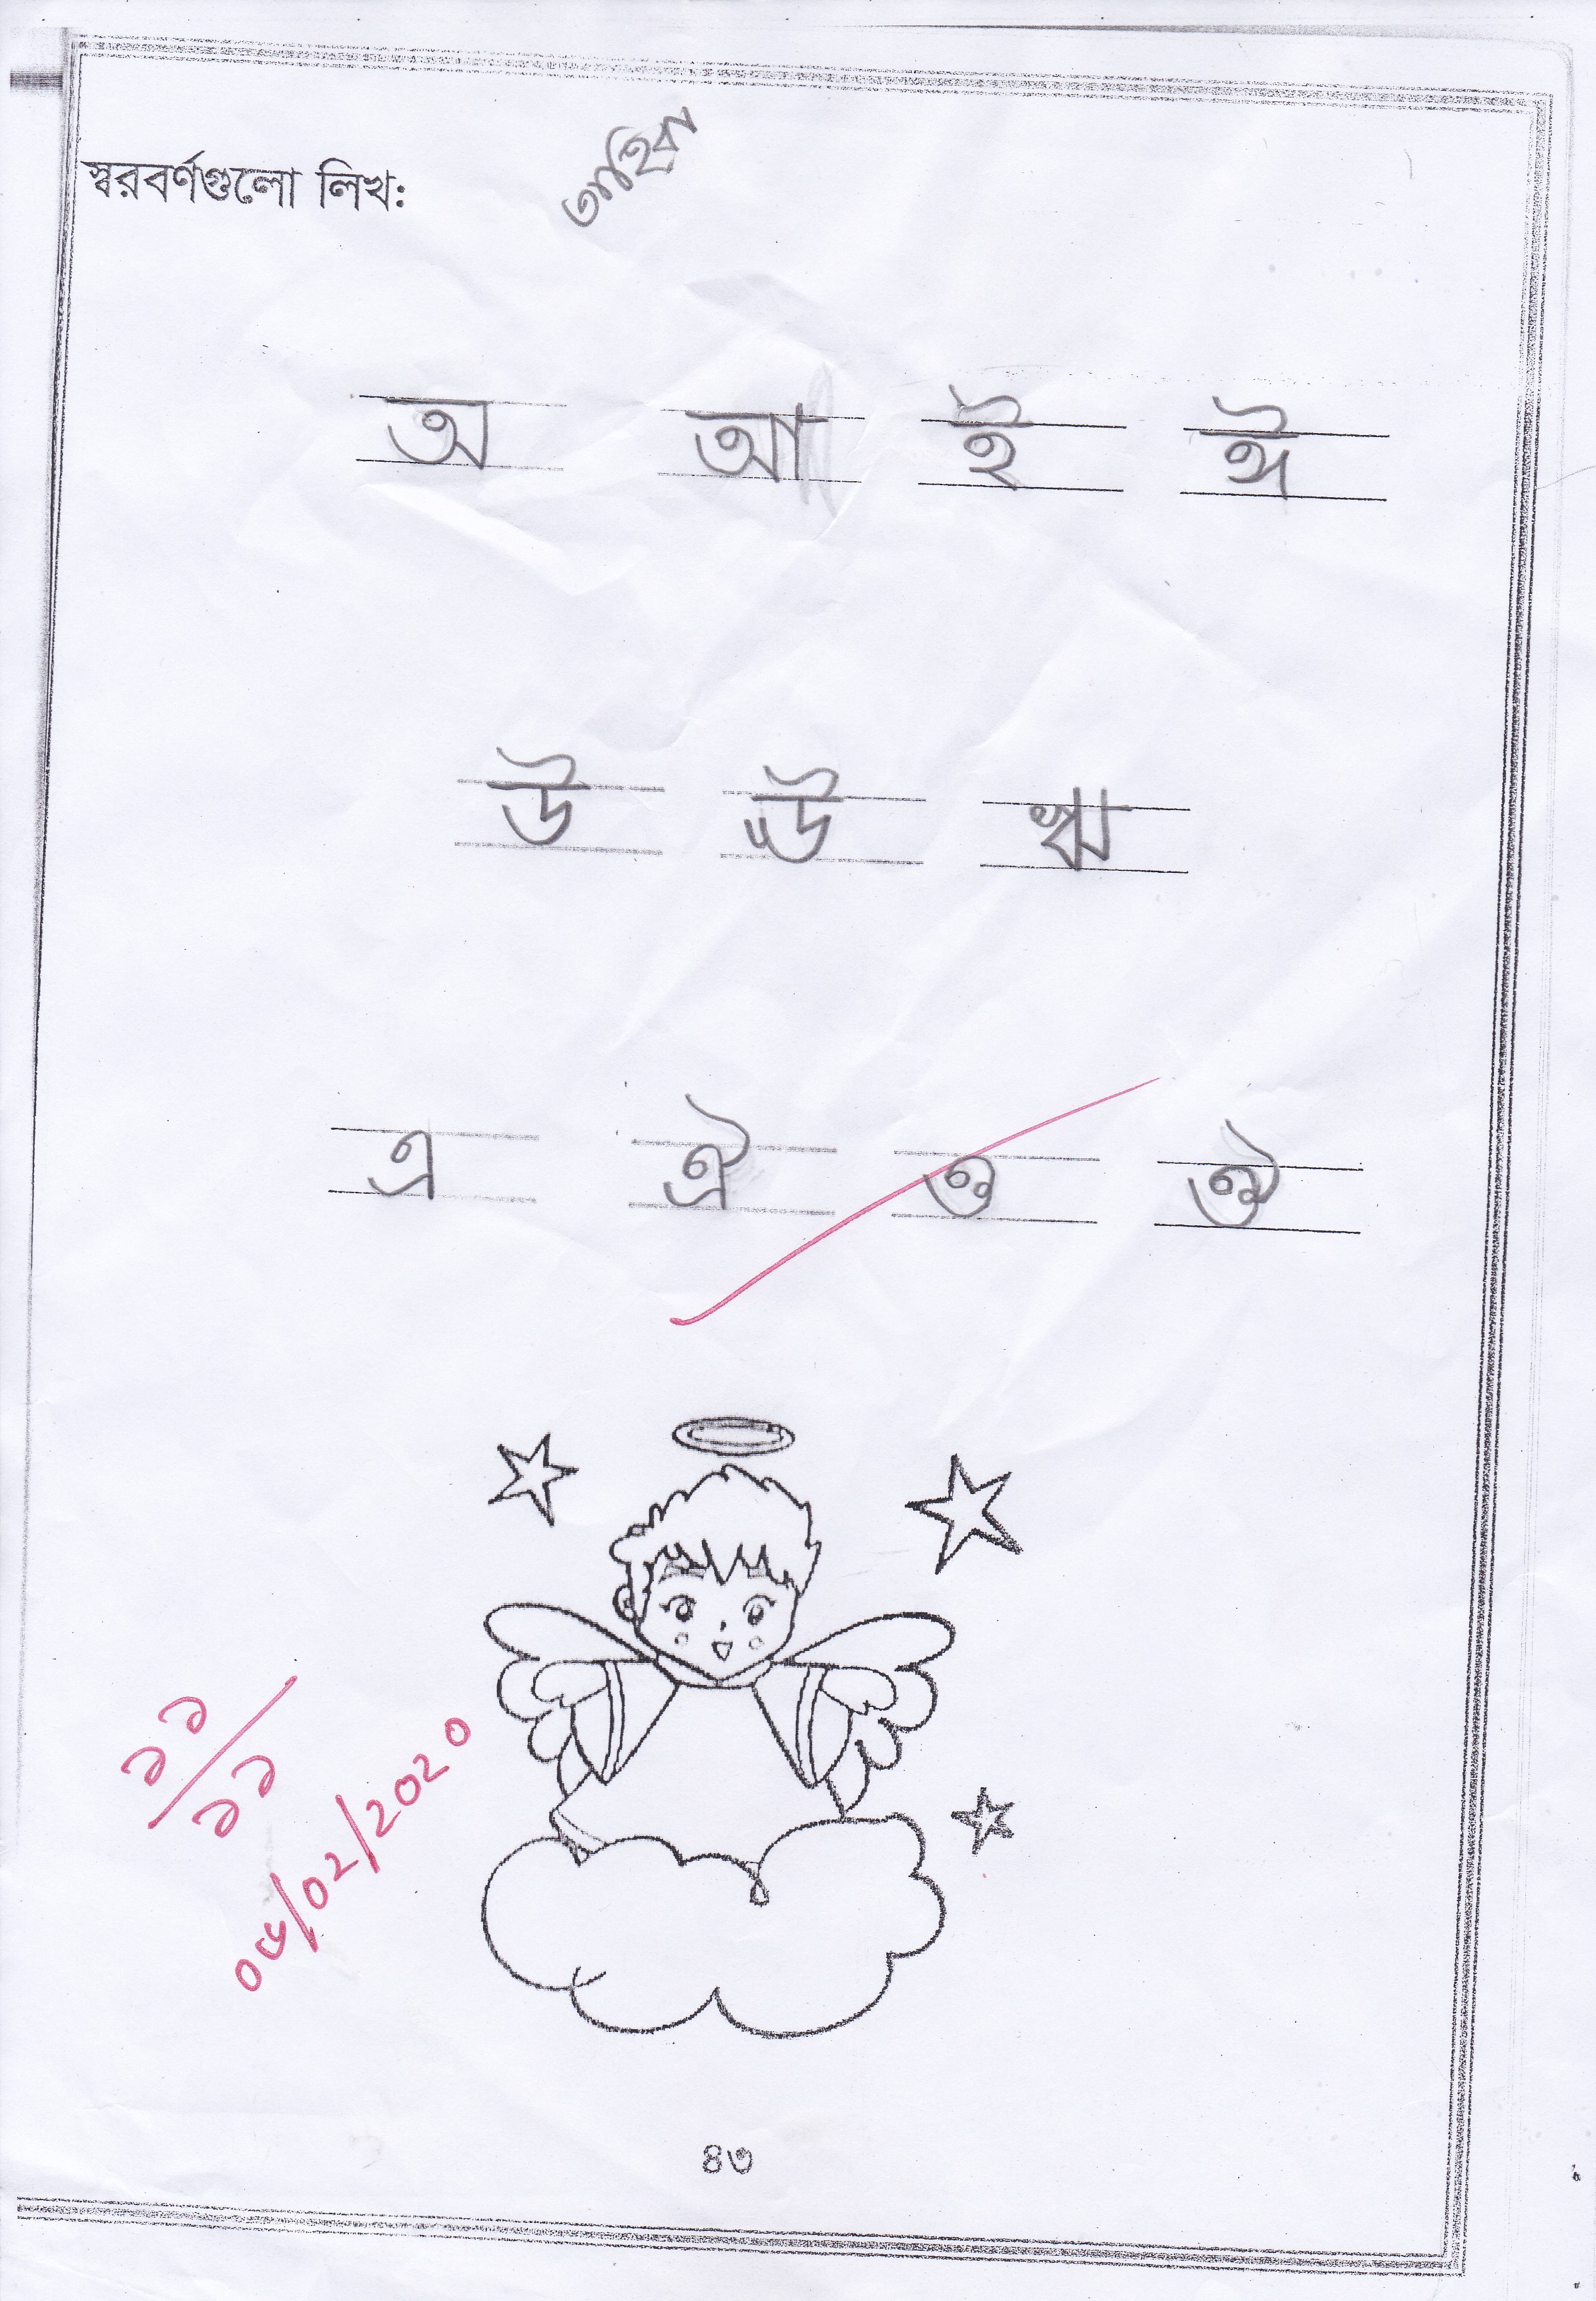 স্বরবর্ণগুলো লিখ:
তাহিবা
অ আ ই ঈ
উ ঊ ঋ
এ ঐ ও ঔ
১১/১১
/02/2020
৪৩